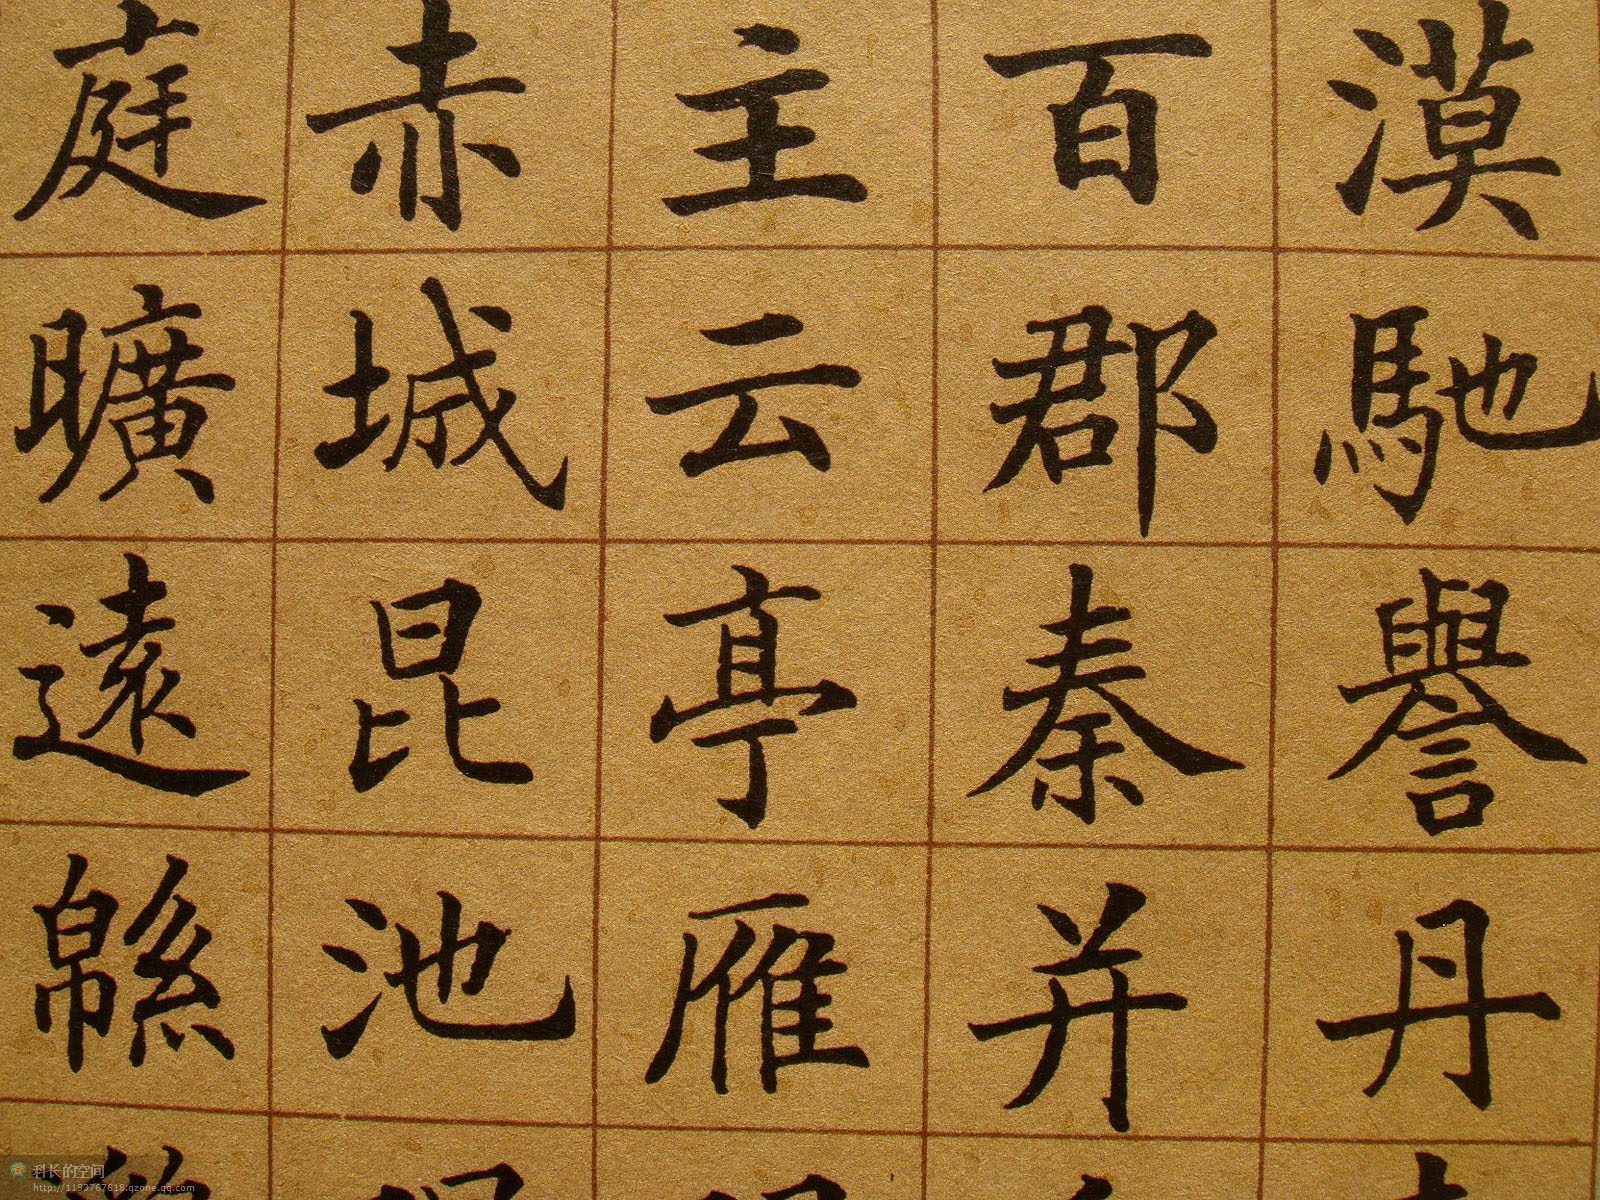 漠馳譽丹
百郡秦并
主云亭雁
赤城昆池
庭曠遠緜
科长的空间
http://1193767618.qzone.qq.com